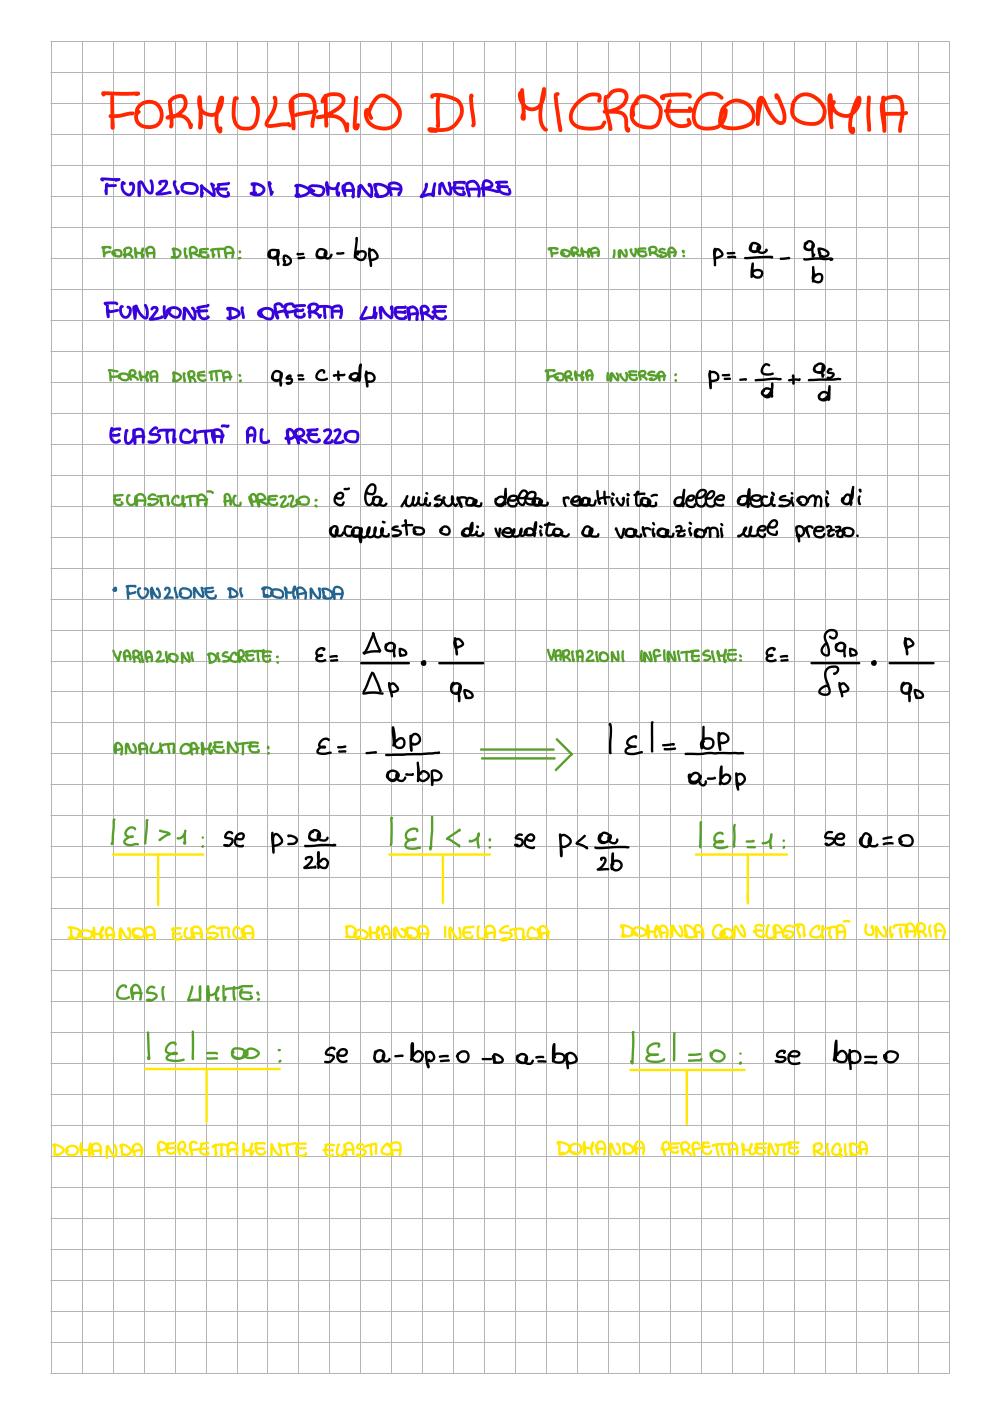 FORMULARIO DI MICROECONOMIA
FUNZIONE DI DOMANDA LINEARE
FORMA DIRETTA: q_D = a - bp FORMA INVERSA: p = a/b - q_D/b
FUNZIONE DI OFFERTA LINEARE
FORMA DIRETTA: q_s = c + dp FORMA INVERSA: p = - c/d + q_s/d
ELASTICITÀ AL PREZZO
ELASTICITÀ AL PREZZO: è la misura della reattività delle decisioni di
acquisto o di vendita a variazioni nel prezzo.
• FUNZIONE DI DOMANDA
VARIAZIONI DISCRETE: ε = Δq_D/Δp · p/q_D VARIAZIONI INFINITESIME: ε = δq_D/δp · p/q_D
ANALITICAMENTE: ε = - bp/(a-bp) ⟹ |ε| = bp/(a-bp)
|ε| > 1: se p > a/2b |ε| < 1: se p < a/2b |ε| = 1: se a = 0
DOMANDA ELASTICA DOMANDA INELASTICA DOMANDA CON ELASTICITÀ UNITARIA
CASI LIMITE:
|ε| = ∞: se a - bp = 0 → a = bp |ε| = 0: se bp = 0
DOMANDA PERFETTAMENTE ELASTICA DOMANDA PERFETTAMENTE RIGIDA